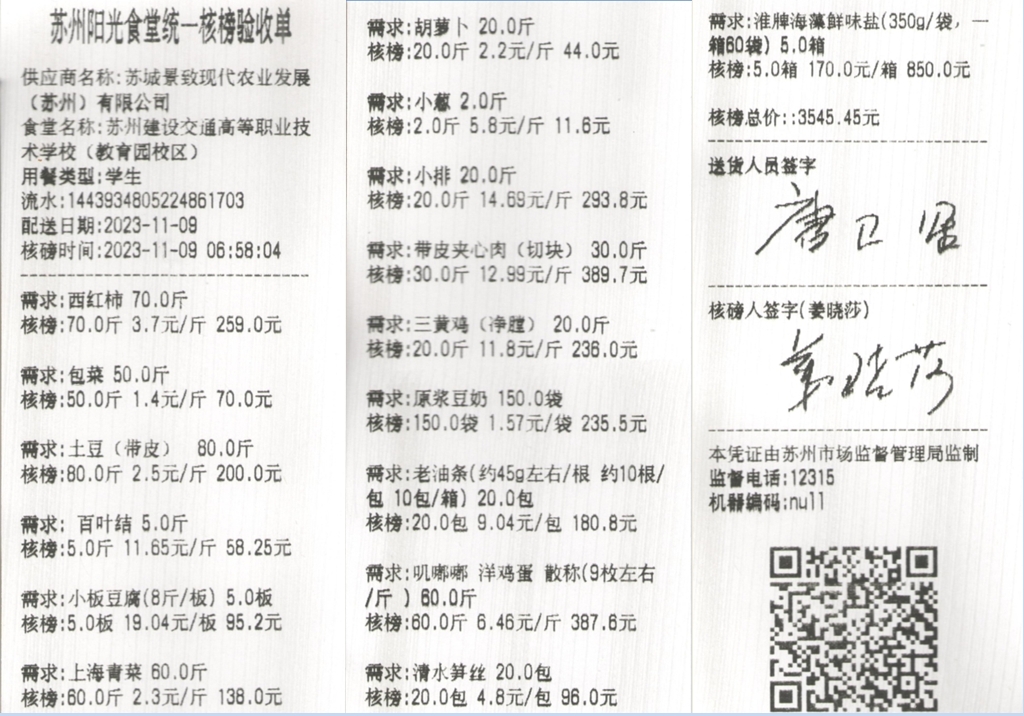 苏州阳光食堂统一核榜验收单
供应商名称:苏城景致现代农业发展
（苏州）有限公司
食堂名称:苏州建设交通高等职业技
术学校（教育园校区）
用餐类型:学生
流水:1443934805224861703
配送日期:2023-11-09
核磅时间:2023-11-09 06:58:04
需求:西红柿 70.0斤
核榜:70.0斤 3.7元/斤 259.0元
需求:包菜 50.0斤
核榜:50.0斤 1.4元/斤 70.0元
需求:土豆（带皮） 80.0斤
核榜:80.0斤 2.5元/斤 200.0元
需求: 百叶结 5.0斤
核榜:5.0斤 11.65元/斤 58.25元
需求:小板豆腐(8斤/板) 5.0板
核榜:5.0板 19.04元/板 95.2元
需求:上海青菜 60.0斤
核榜:60.0斤 2.3元/斤 138.0元
需求:胡萝卜 20.0斤
核榜:20.0斤 2.2元/斤 44.0元
需求:小葱 2.0斤
核榜:2.0斤 5.8元/斤 11.6元
需求:小排 20.0斤
核榜:20.0斤 14.69元/斤 293.8元
需求:带皮夹心肉（切块） 30.0斤
核榜:30.0斤 12.99元/斤 389.7元
需求:三黄鸡（净膛） 20.0斤
核榜:20.0斤 11.8元/斤 236.0元
需求:原浆豆奶 150.0袋
核榜:150.0袋 1.57元/袋 235.5元
需求:老油条(约45g左右/根 约10根/
包 10包/箱) 20.0包
核榜:20.0包 9.04元/包 180.8元
需求:叽嘟嘟 洋鸡蛋 散称(9枚左右
/斤 ) 60.0斤
核榜:60.0斤 6.46元/斤 387.6元
需求:清水笋丝 20.0包
核榜:20.0包 4.8元/包 96.0元
需求:淮牌海藻鲜味盐(350g/袋，一
箱60袋) 5.0箱
核榜:5.0箱 170.0元/箱 850.0元
核榜总价::3545.45元
送货人员签字
唐卫
核磅人签字(姜晓莎)
姜晓莎
本凭证由苏州市场监督管理局监制
监督电话:12315
机器编码:null